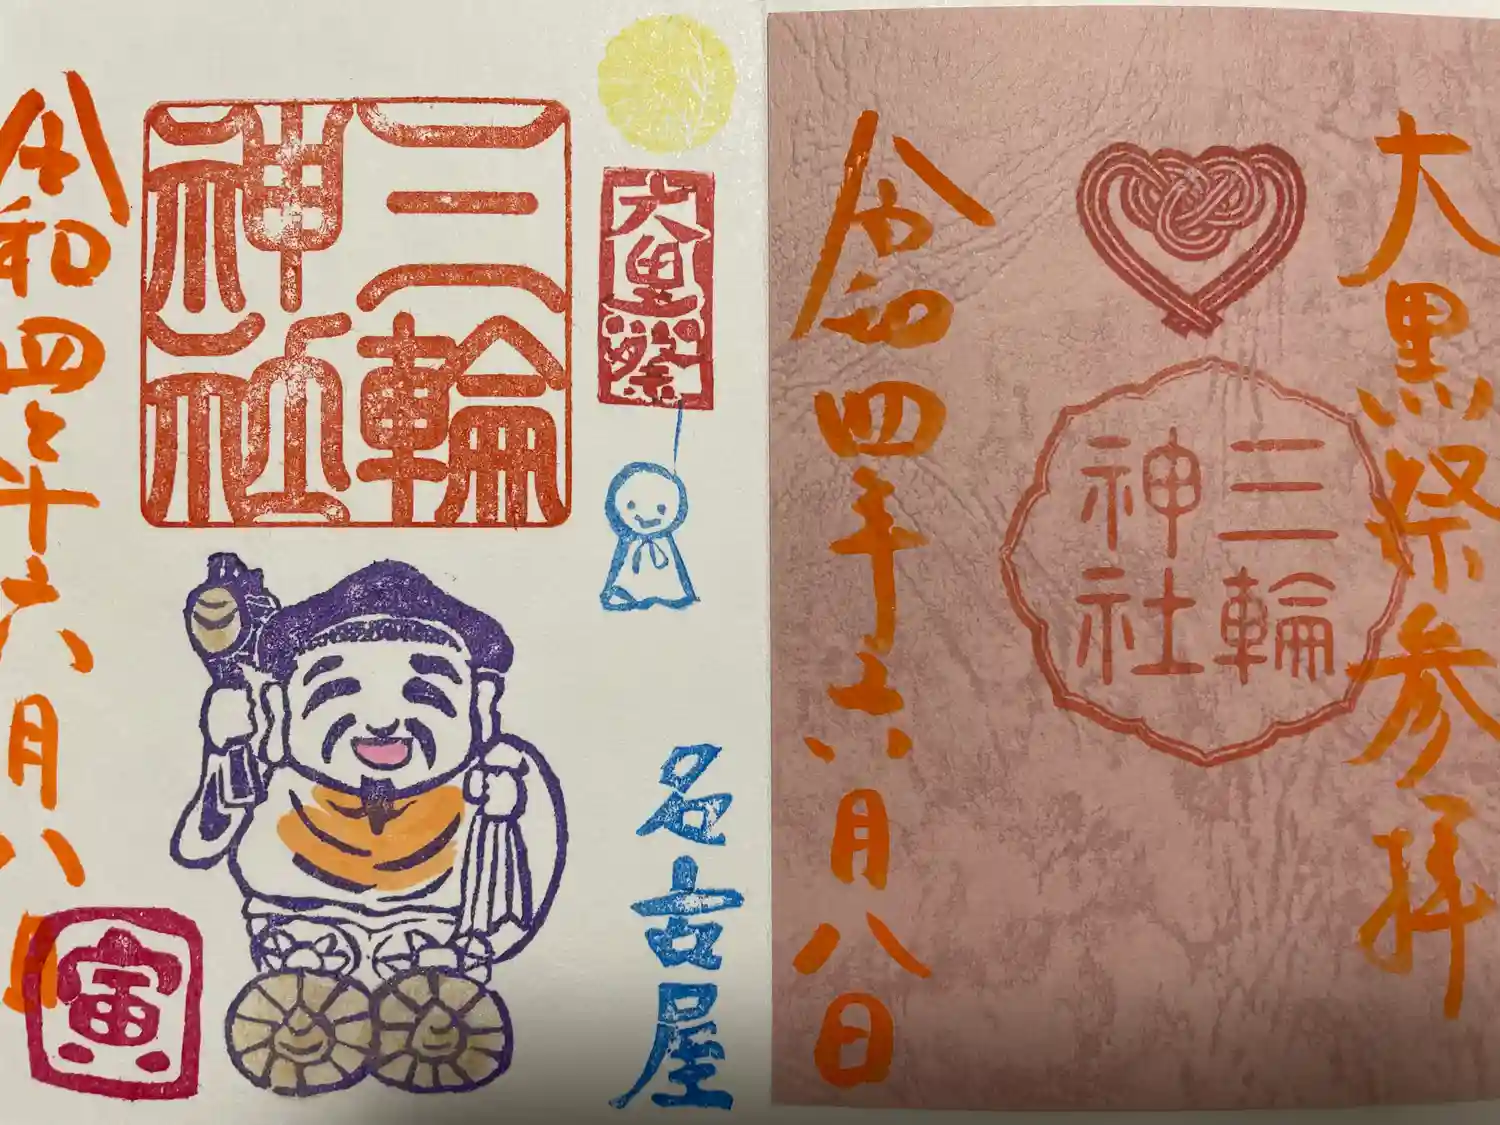 大黒祭参拝
三輪
神社
令和四年六月八日
大黒祭
名古屋
三輪
神社
寅
令和四年六月八日